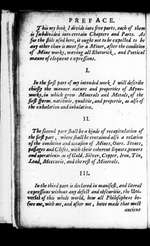 PREFACE.
This my book, I divide into five parts, each of them
is subdivided into certain Chapters and Parts. As
for the style of it here, it ought not to be expected to be
any other than is meet for a Miner, after the condition
of Mine works, waving all Rhetorick, and Poetical
manner of eloquent expressions.
I.
In the first part of my intended work, I will describe
chiefly the manner nature and property of Myne-
works, in which grow Minerals and Metals, of the
first sperm, nutriment, and propertie, as also of
the substance and inhabitation.
II.
The second part shall be a kinde of recapitulation of
the first part, where shall be contained also a relation
of the condition and season of Mines, Ores, Stones,
passages and Clifts, with their coherent liquors powers
and operations as of Gold, Silver, Copper, Iron, Tin,
Lead, Mercurie, and the rest of Minerals.
III.
In the third part is declared in manifest, and literal
expressions without any deficit and obscuritie, the Uni-
versal of this whole world, how all Philosophers be-
fore me, with me, and after me, have made that most
ancient